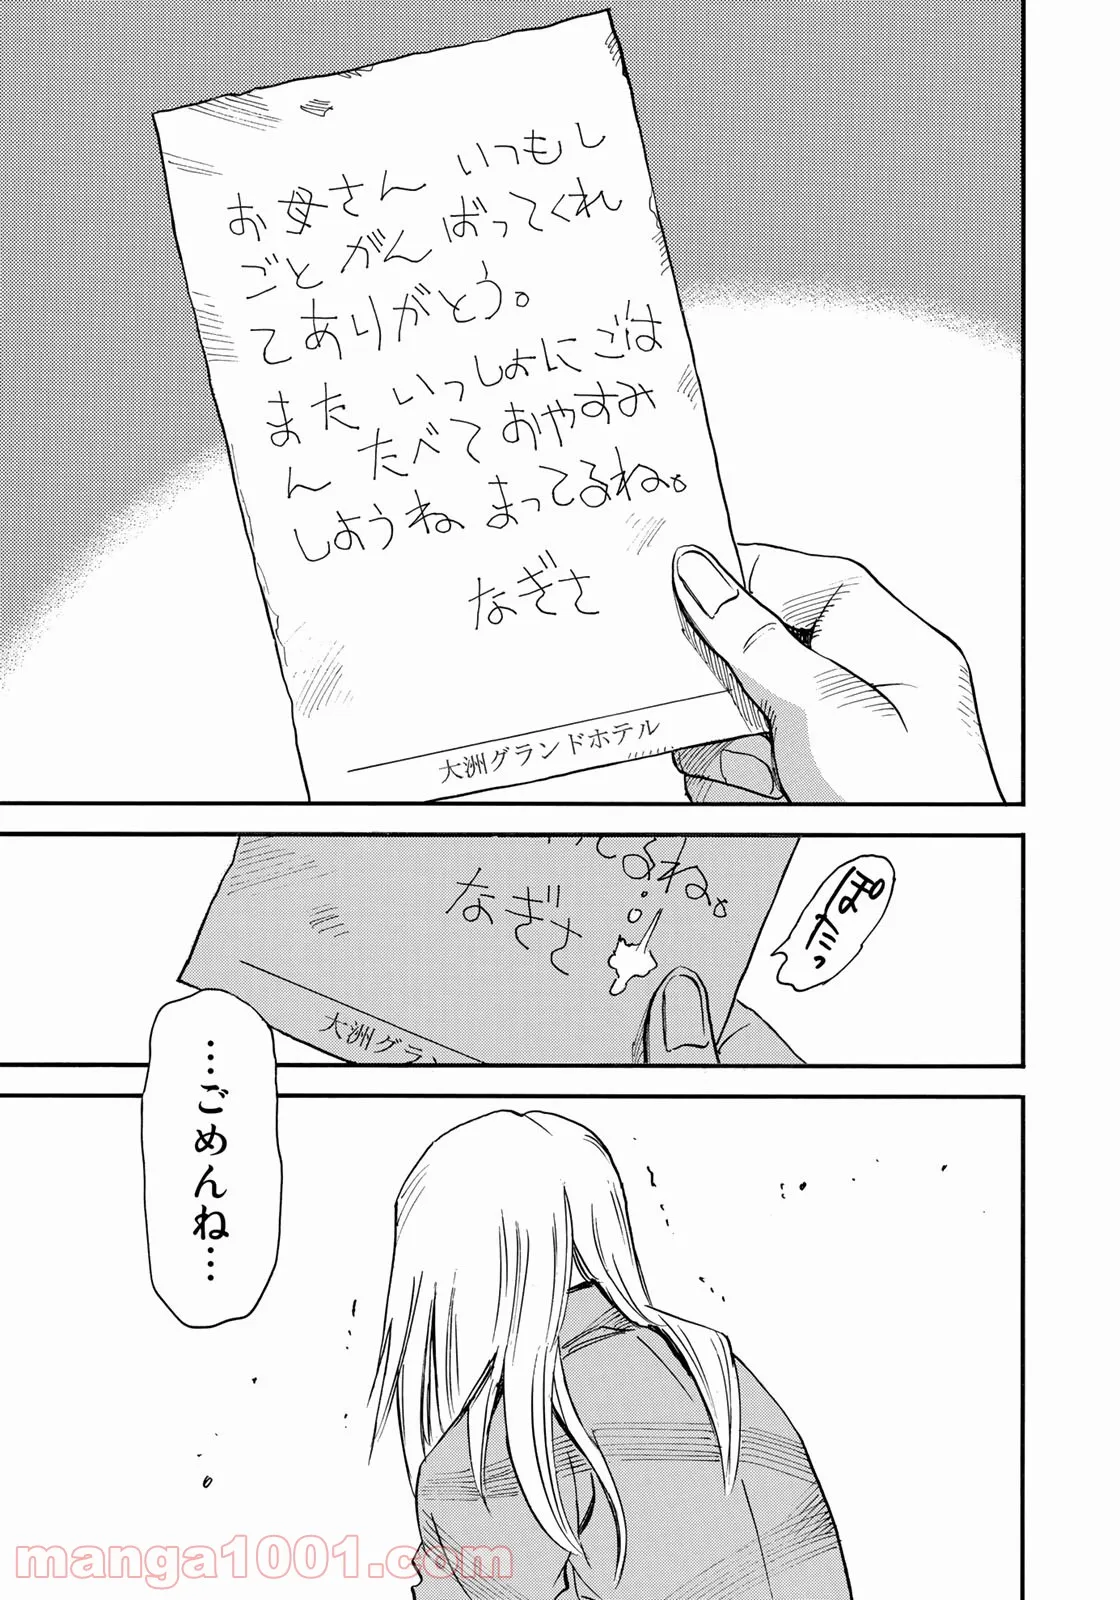 お母さん いつもし
ごと がん ばってくれ
てありがとう。
また いっしょにごは
ん たべて おやすみ
しようね まってるね。
なぎさ
大洲グランドホテル
てるね。
なぎさ
大洲グラン
…ごめんね…
manga1001.com